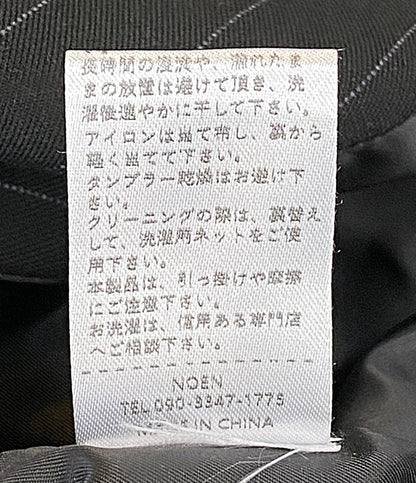 長時間の浸漬や、濡れたま
まの放置は避けて頂き、洗
濯後速やかに干して下さい。
アイロンは当て布し、裏から
軽く当てて下さい。
タンブラー乾燥はお避け下
さい。
クリーニングの際は、裏替え
して、洗濯用ネットをご使
用下さい。
本製品は、引っ掛けや摩擦
にご注意下さい。
お洗濯は、信用ある専門店
へご相談下さい。
NOEN
TEL 090-3347-1775
MADE IN CHINA